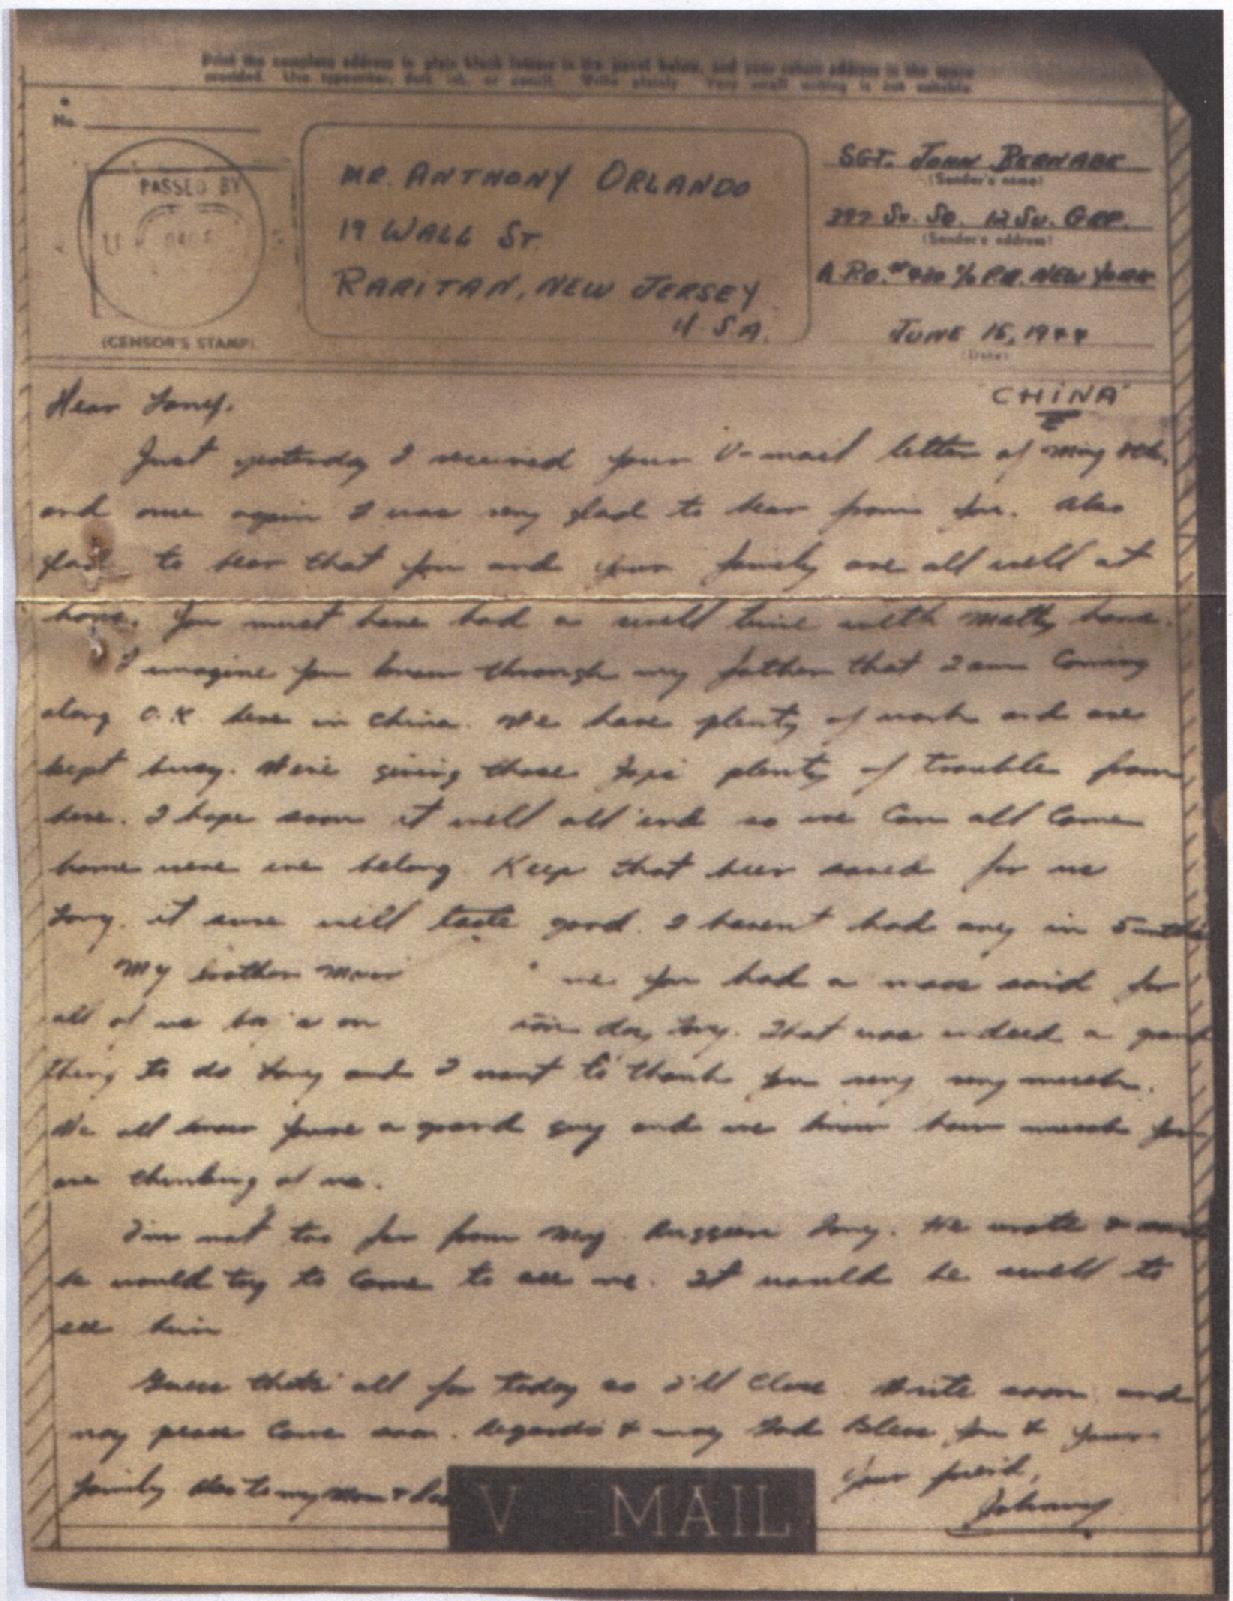 Print the complete address in plain block letters in the panel below, and your return address in the space
provided. Use typewriter, dark ink, or pencil. Write plainly. Very small writing is not suitable.
No.
PASSED BY
(CENSOR'S STAMP)
MR. ANTHONY ORLANDO
19 WALL ST.
RARITAN, NEW JERSEY
U.S.A.
SGT. JOHN BERNABE
(Sender's name)
SV. GRP.
(Sender's address)
A.P.O. # % P.M. NEW YORK
JUNE 15, 1944
(Date)
"CHINA"
Dear Tony,
Just yesterday I received your V-mail letter of May 8th,
and once again I was very glad to hear from you. Also
glad to hear that you and your family are all well at
home. You must have had a swell time with Matty home.
I imagine you know through my father that I am coming
along O.K. here in China. We have plenty of work and are
kept busy. We're giving those Japs plenty of trouble from
here. I hope soon it will all end so we can all come
home were we belong. Keep that beer saved for us
Tony, it sure will taste good. I haven't had any in 5 mths
My brother me you had a mass said for
all of us boys on day, Tony. That was indeed a grand
thing to do Tony and I want to thank you very very much.
We all know youre a grand guy and we know how much you
are thinking of us.
I'm not too far from Tony. He wrote &
he would try to come to see me. It would be swell to
see him
Guess thats all for today so I'll close. Write soon and
may peace come soon. Regards & may God Bless you & your
family. Also to my Mom & Dad
Your friend,
Johnny
V MAIL